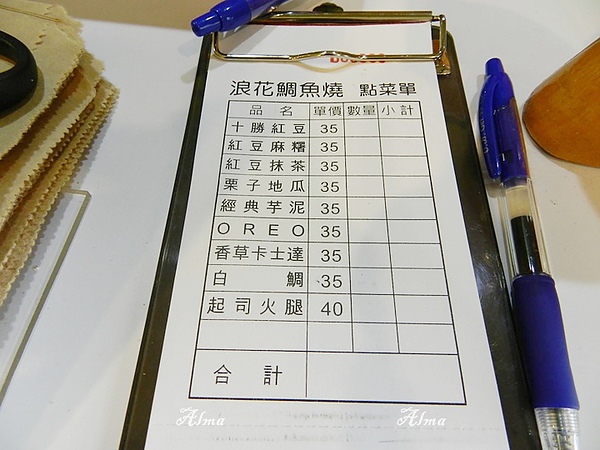 浪花鯛魚燒 點菜單
品名 單價 數量 小計
十勝紅豆 35
紅豆麻糬 35
紅豆抹茶 35
栗子地瓜 35
經典芋泥 35
OREO 35
香草卡士達 35
白鯛 35
起司火腿 40
合計
Alma Alma